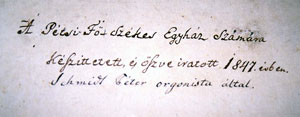 A Pétsi Fő Székes Egyház Számára
Készíttetett, és öszve iratott 1847 ikben.
Schmidt Péter orgonista által.